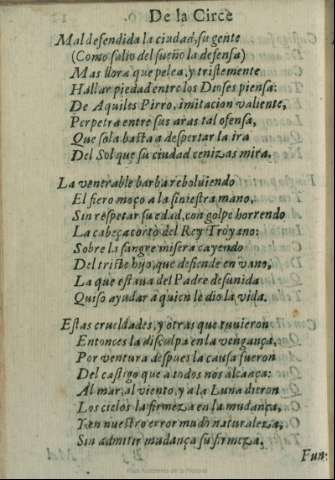 De la Circe
Mal defendida la ciudad, su gente
(Como salio del sueño la defensa)
Mas llora que pelea, y tristemente
Hallar piedad entre los Dioses piensa:
De Aquiles Pirro, imitacion valiente,
Perpetra entre sus aras tal ofensa,
Que sola basta a despertar la ira
Del Sol que su ciudad cenizas mira.
La venerable barba reboluiendo
El fiero moço a la siniestra mano,
Sin respetar su edad, con golpe horrendo
La cabeça cortò del Rey Troyano:
Sobre la sangre misera cayendo
Del triste hijo, que defiende en vano,
La que estaua del Padre desunida
Quiso ayudar a quien le dio la vida.
Estas crueldades, y otras que tuuieron
Entonces la disculpa en la vengança,
Por ventura despues la causa fueron
Del castigo que a todos nos alcança:
Al mar, al viento, y a la Luna dieron
Los cielos la firmeza en la mudança,
Y en nuestro error mudò naturaleza,
Sin admitir mudança su firmeza.
Fun-